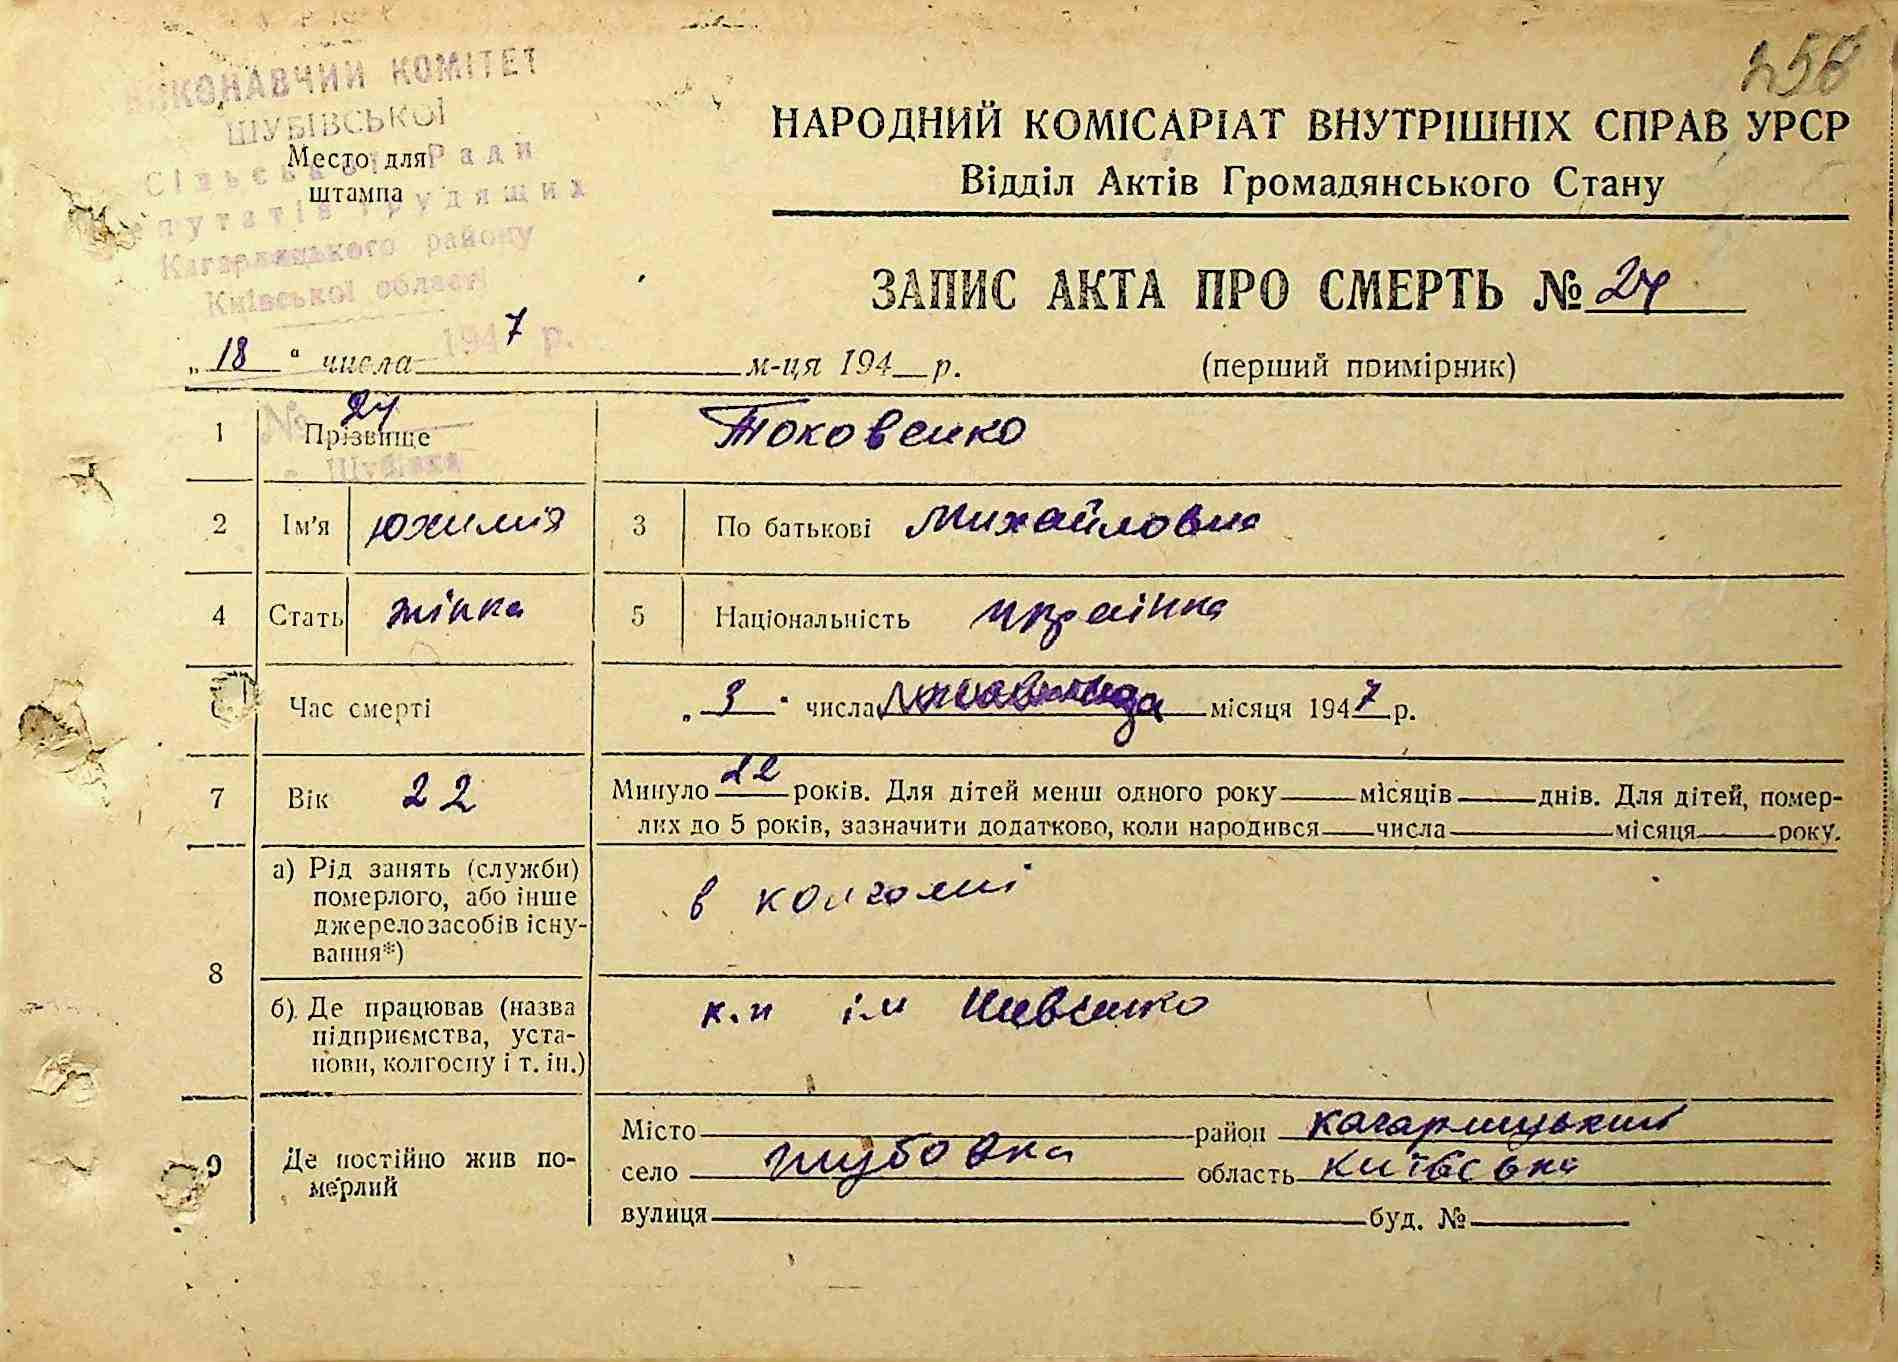 258
ВИКОНАВЧИЙ КОМІТЕТ
ШУБІВСЬКОЇ
Сільської Ради
депутатів трудящих
Кагарлицького району
Київської області
1947 р.
№ 24
с. Шубівка
Место для
штампа
НАРОДНИЙ КОМІСАРІАТ ВНУТРІШНІХ СПРАВ УРСР
Відділ Актів Громадянського Стану
ЗАПИС АКТА ПРО СМЕРТЬ № 24
„18“ числа м-ця 194 р. (перший примірник)
1 Прізвище Токовенко
2 Ім'я Юхимія 3 По батькові Михайловна
4 Стать жінка 5 Національність українка
Час смерті „3“ числа місяця 1947 р.
7 Вік 22 Минуло 22 років. Для дітей менш одного року місяців днів. Для дітей, помер-
лих до 5 років, зазначити додатково, коли народився числа місяця року.
8 а) Рід занять (служби)
померлого, або інше
джерело засобів існу-
вання*)
в колгоспі
б) Де працював (назва
підприємства, уста-
нови, колгоспу і т. ін.)
к.п ім Шевченко
9 Де постійно жив по-
мерлий
Місто район Кагарлицький
село Шубовка область Київська
вулиця буд. №